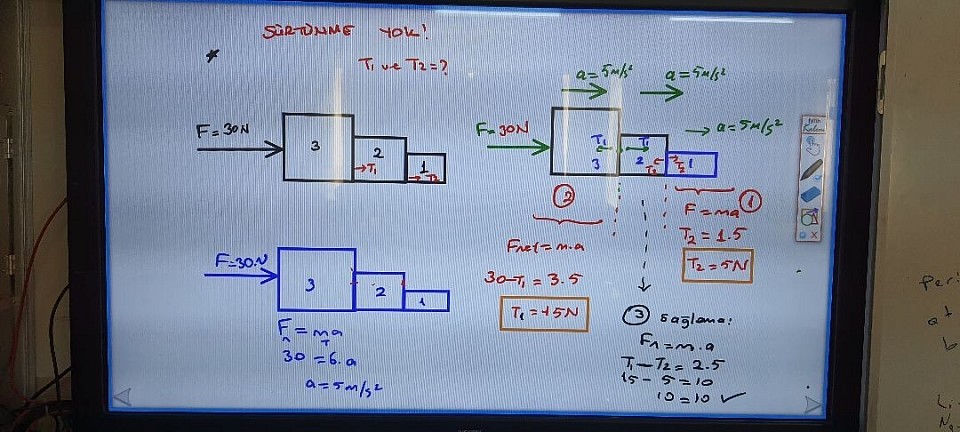 SÜRTÜNME YOK!
T₁ ve T₂ = ?
F = 30N
3
2
1
→T₁
T₂
F=30N
3
2
1
F = ma
30 = 6.a
a = 5 m/s²
a = 5 m/s²
a = 5 m/s²
→ a = 5 m/s²
F=30N
T₁
T₁
3
2
T₂
T₂
1
②
Fnet = m.a
30-T₁ = 3.5
T₁ = 15N
①
F = ma
T₂ = 1.5
T₂ = 5N
③ Sağlama:
Fn = m.a
T₁ - T₂ = 2.5
15 - 5 = 10
10 = 10 ✓